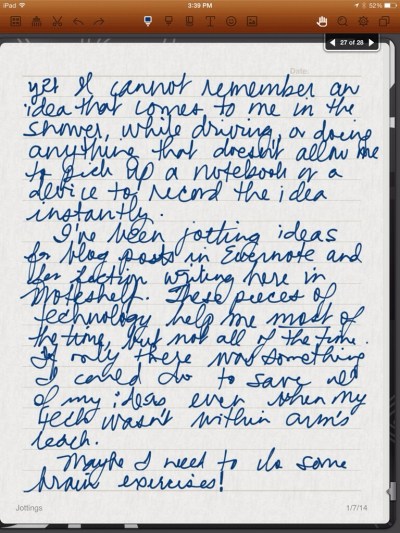 iPad
3:39 PM
52%
27 of 28
Date:
yet I cannot remember an
idea that comes to me in the
shower, while driving, or doing
anything that doesn't allow me
to pick up a notebook or a
device to record the idea
instantly.
I've been jotting ideas
for blog posts in Evernote and
for fiction writing here in
Noteshelf. These pieces of
technology help me most of
the time, but not all of the time.
If only there was something
I could do to save all
of my ideas even when my
tech wasn't within arm's
reach.
Maybe I need to do some
brain exercises!
Jottings
1/7/14